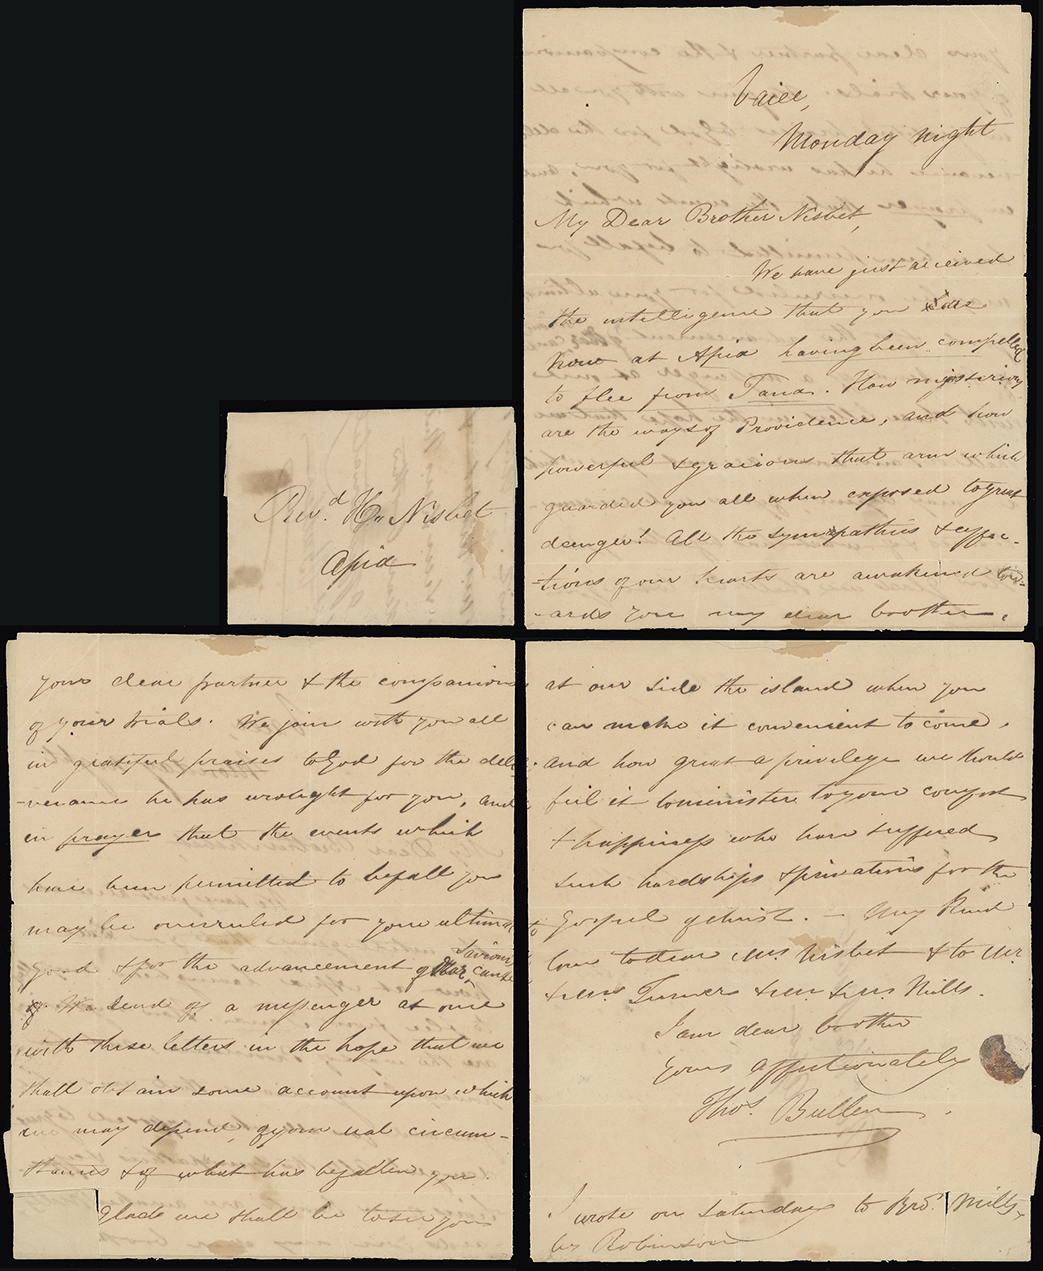 Rev.d H. Nisbet
Apia
Vaiee,
Monday night
My Dear Brother Nisbet,
We have just received
the intelligence that you are
now at Apia having been compelled
to flee from Tana. How mysterious
are the ways of Providence, and how
powerful & gracious that arm which
guarded you all when exposed to great
danger! All the sympathies & affec-
-tions of our hearts are awakened tow-
-ards you my dear brother,
your dear partner & the companions
of your trials. We join with you all
in grateful praises to God for the deli-
-verance he has wrought for you, and
in prayer that the events which
have been permitted to befall you
may be overruled for your ultimate
good & for the advancement of the Saviour's cause
We send off a messenger at once
with these letters in the hope that we
shall obtain some account upon which
we may depend, of your real circum-
-stances & of what has befallen you.
Glad we shall be to see you
at our side the island when you
can make it convenient to come,
and how great a privilege we should
feel it to minister to your comfort
& happiness who have suffered
such hardships & privations for the
Gospel of Christ. — My kind
love to dear Mrs Nisbet & to Mr
& Mrs Turner & Mr & Mrs Mills.
I am dear brother
yours affectionately
Thos. Bullen
I wrote on Saturday to Bro. Mills,
by Robinson